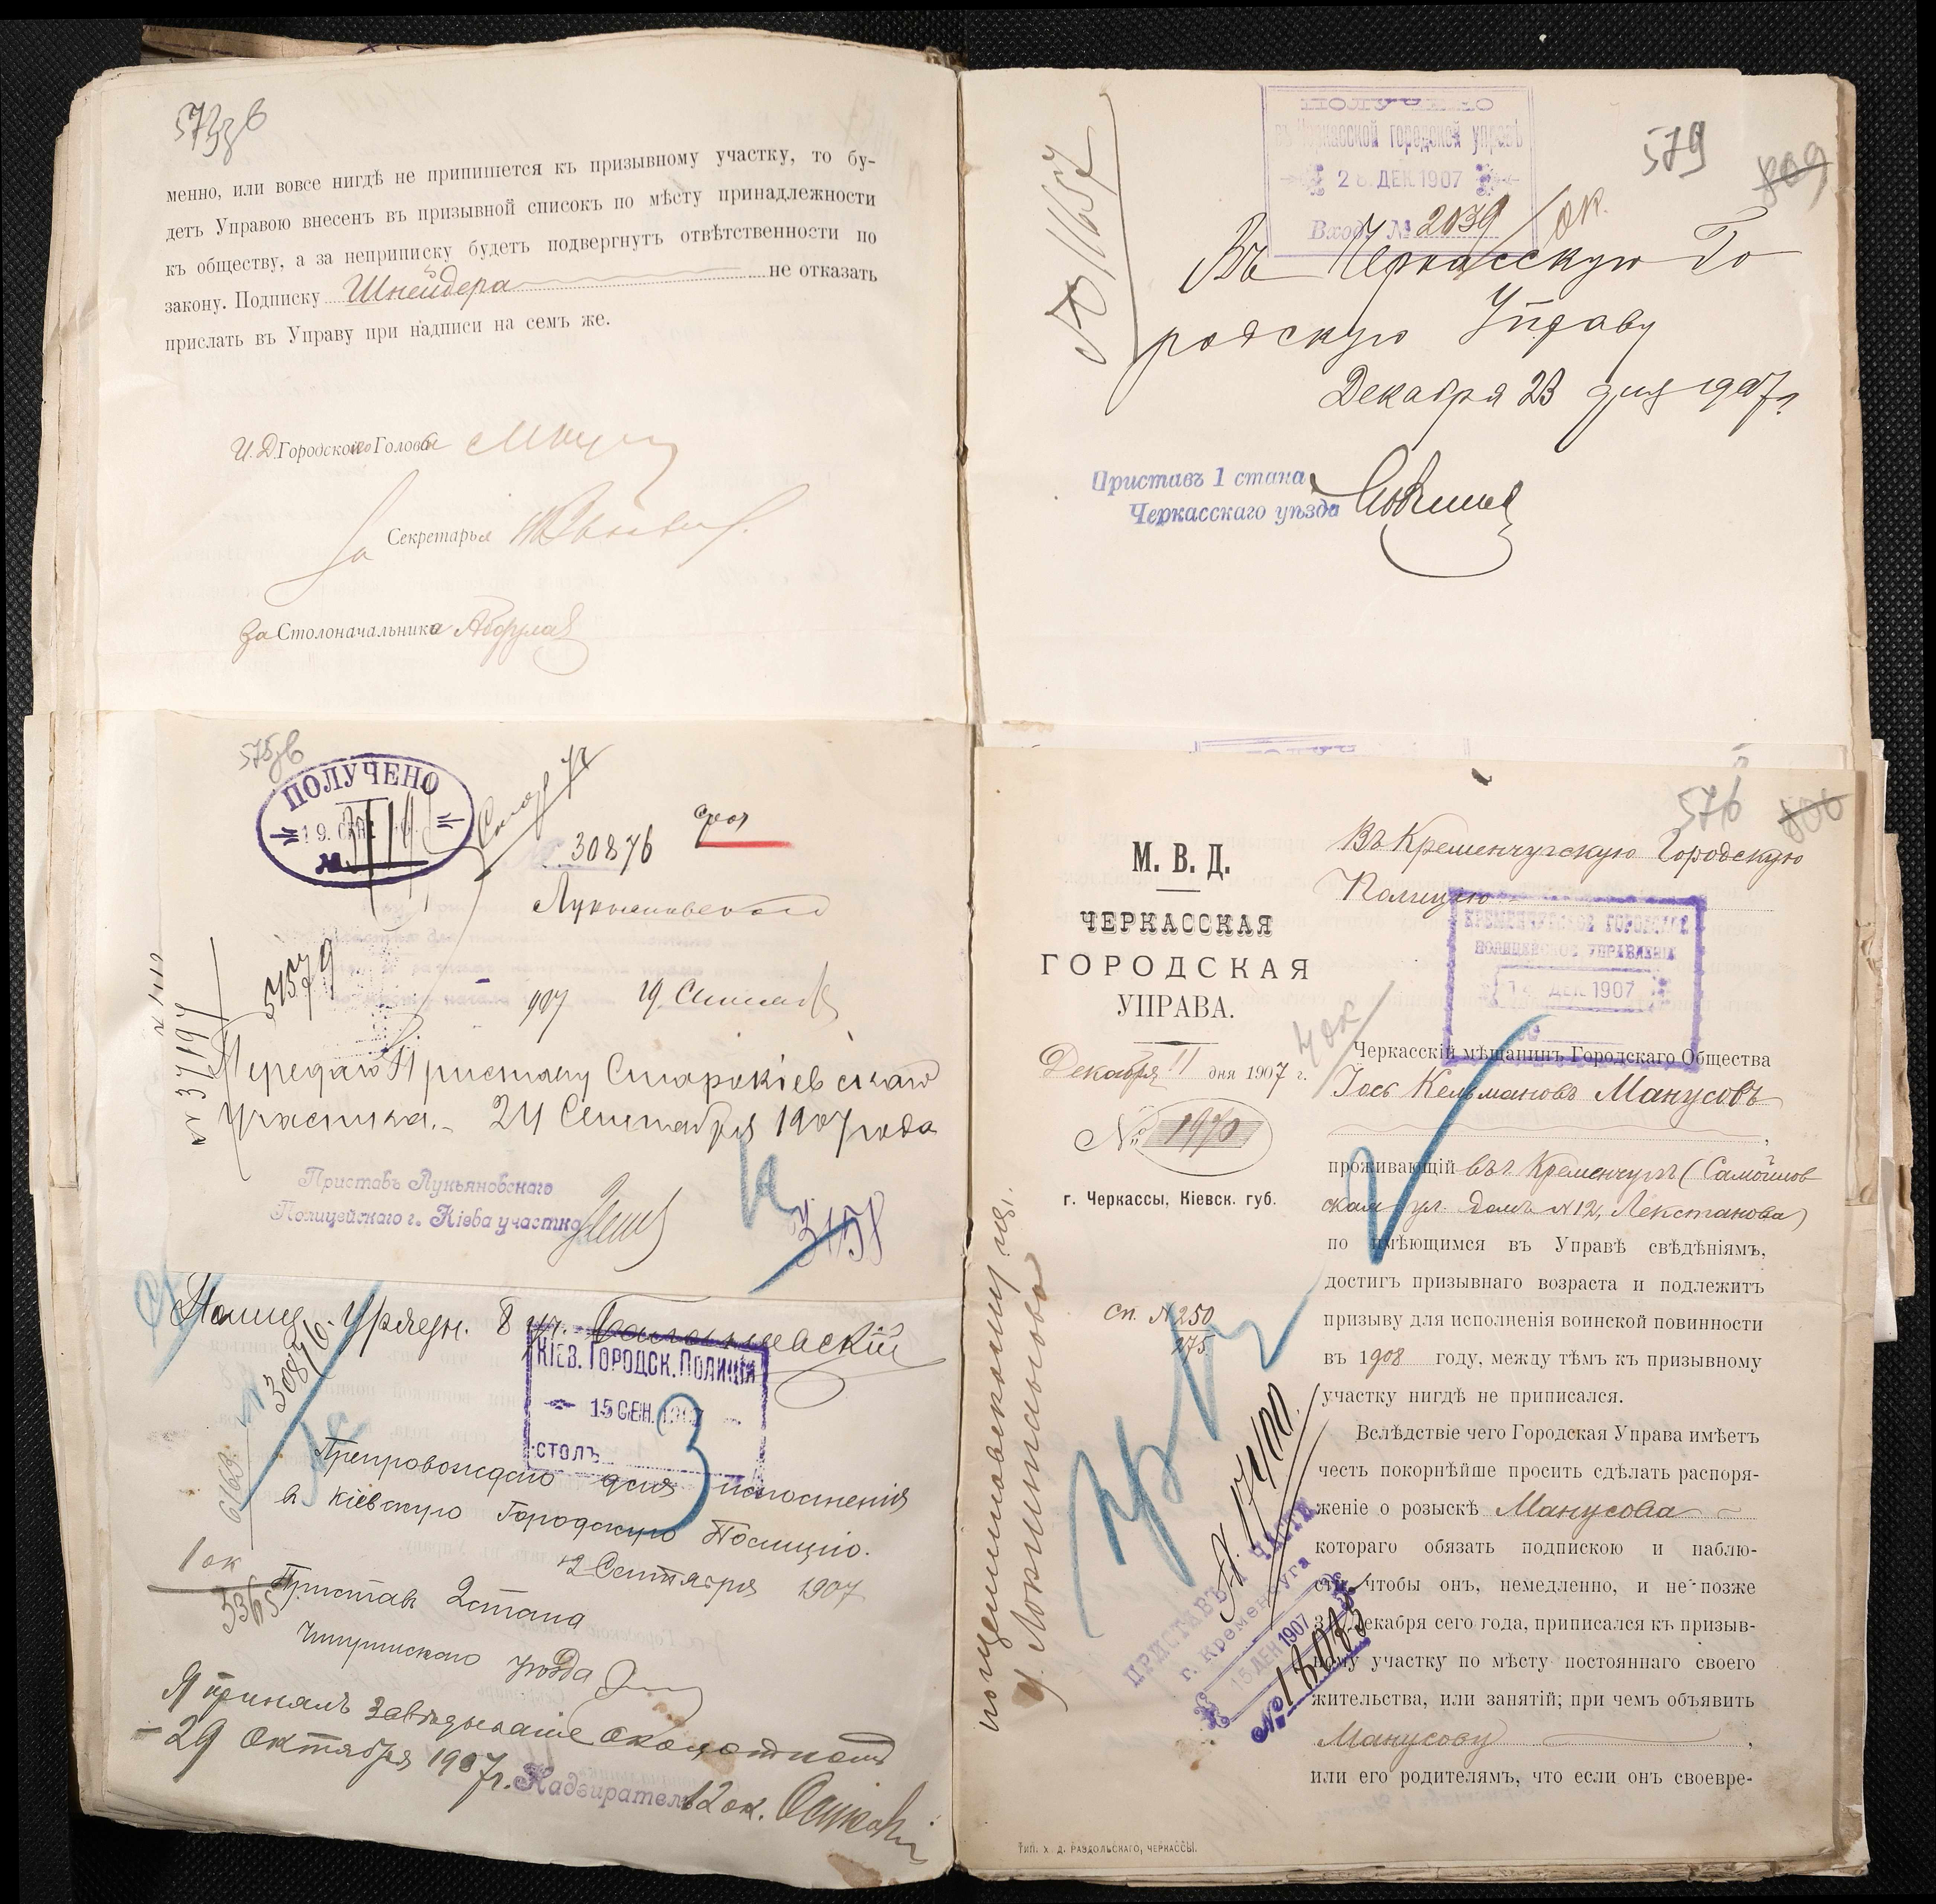 573
менно, или вовсе нигдѣ не припишется къ призывному участку, то бу-
детъ Управою внесенъ въ призывной списокъ по мѣсту принадлежности
къ обществу, а за неприписку будетъ подвергнутъ отвѣтственности по
закону. Подписку Шнейдера не отказать
прислать въ Управу при надписи на семъ же.
И. Д. Городского Головы
За Секретаря
За Столоначальника
575
ПОЛУЧЕНО
30876
Лукьяновскаго
907 19
№ 37197
Передаю Приставу Старокіевскаго
участка. 24 Сентября 1907 года
Приставъ Лукьяновскаго
Полицейскаго г. Кіева участка
3158
Полиц. Урядн. 8 уч.
30876
КІЕВ. ГОРОДСК. ПОЛИЦІЯ
15 СЕН. 1907
СТОЛЪ
Препровождаю для исполненія
в Кіевскую Городскую Полицію.
12 Сентября 1907
1 ок
Пристав 2 стана
уѣзда
Я принялъ завѣдываніе околоткомъ
29 Октября 1907 г.
Надзиратель 12 ок.
ПОЛУЧЕНО
въ Черкасской городской управѣ
28 ДЕК 1907
Вход. № 2039
579
809
№ 11657
Въ Черкасскую Го
родскую Управу
Декабря 23 дня 1907 г.
Приставъ 1 стана
Черкасскаго уѣзда
576
806
М. В. Д.
ЧЕРКАССКАЯ
ГОРОДСКАЯ
УПРАВА.
Декабря 11 дня 1907 г.
№ 1970
г. Черкассы, Кіевск. губ.
сп. № 250
275
Въ Кременчугскую Городскую
Полицію
КРЕМЕНЧУГСКОЕ ГОРОДСКОЕ
ПОЛИЦЕЙСКОЕ УПРАВЛЕНІЕ
ДЕК. 1907
4 ок
Черкасскій мѣщанинъ Городскаго Общества
Іось Кельмановъ Манусовъ
проживающій въ г. Кременчугѣ (Самойлов
ская ул. домъ № 12, Лекстанова)
по имѣющимся въ Управѣ свѣдѣніямъ,
достигъ призывнаго возраста и подлежитъ
призыву для исполненія воинской повинности
въ 1908 году, между тѣмъ къ призывному
участку нигдѣ не приписался.
Вслѣдствіе чего Городская Управа имѣетъ
честь покорнѣйше просить сдѣлать распоря-
женіе о розыскѣ Манусова
котораго обязать подпискою и наблю-
сти, чтобы онъ, немедленно, и не позже
31 Декабря сего года, приписался къ призыв-
ному участку по мѣсту постояннаго своего
жительства, или занятій; при чемъ объявить
Манусову
или его родителямъ, что если онъ своевре-
№ 17100.
ПРИСТАВЪ 1 ЧАСТИ
г. Кременчуга
15 ДЕК 1907
№ 18083
ТИП. Х. Д. РАЗДОЛЬСКАГО, ЧЕРКАССЫ.